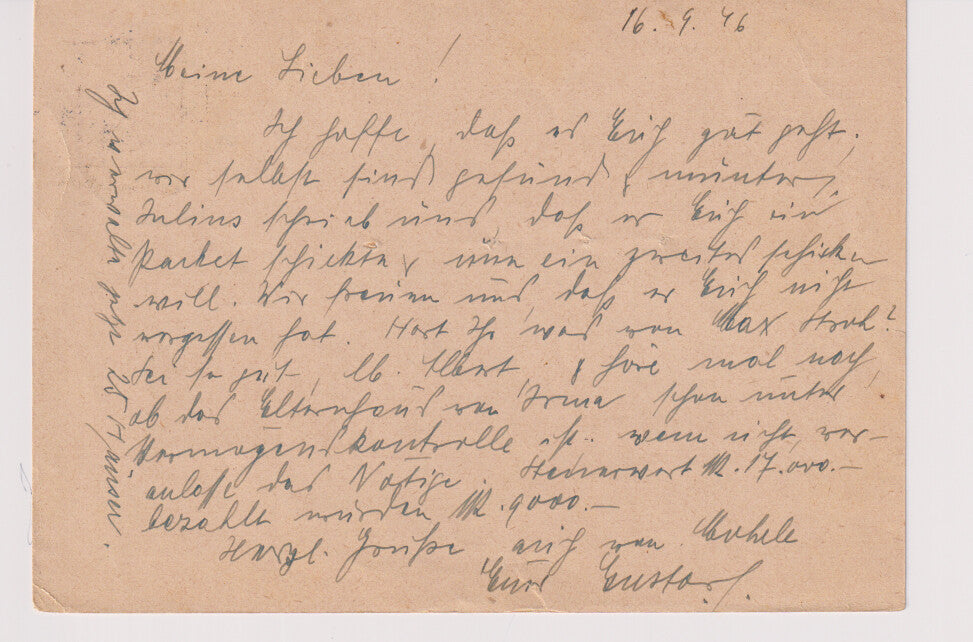 16. 9. 46
Meine Lieben!
Ich hoffe, daß es Euch gut geht,
wir selbst sind gesund & munter.
Julius schrieb uns, daß er Euch ein
Packet schickte & nun ein zweites schicken
will. Wir freuen uns, daß er Euch nicht
vergessen hat. Hört Ihr was von Max Stroh?
Sei so gut, lb. Albert, & höre mal nach,
ob das Elternhaus von Irma schon unter
Vermögenskontrolle ist. wenn nicht, ver-
anlasse das Nötige. Steuerwert M. 17.000.–
bezahlt wurden M. 9000.–
Herzl. Grüße auch von
Euer Gustav.
Ich verwalte jetzt 25 Häuser.